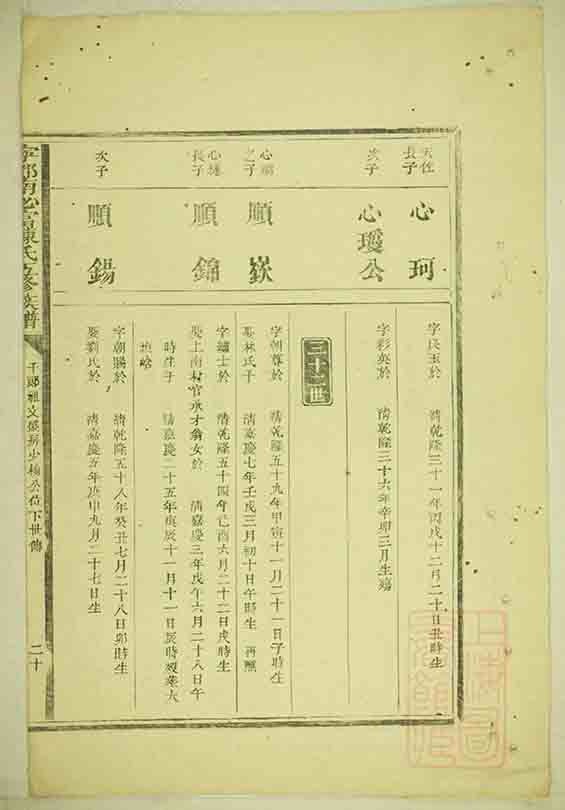 天佐
長子
心珂
字良玉於 清乾隆三十一年丙戌十二月二十日丑時生
次子
心瓊公
字彩英於 清乾隆三十六年辛卯三月生
三十二世
心
之子
順嶔
字朝尊於 清乾隆五十九年甲寅十一月二十一日子時生
娶林氏于 清嘉慶七年壬戌三月初十日午時生 再醮
心
長子
順錦
字繡士於 清乾隆五十四年己酉六月二十二日戌時生
娶上南村官承才翁女於 清嘉慶三年戊午六月二十八日午
時生子 清嘉慶二十五年庚辰十一月十一日辰時歿葬大
次子
順錫
字朝賜於 清乾隆五十八年癸丑七月二十八日卯時生
娶劉氏於 清嘉慶五年庚申九月二十七日生
氏五修族譜
千郎祖文 房少 公位下世傳
二十
上海圖